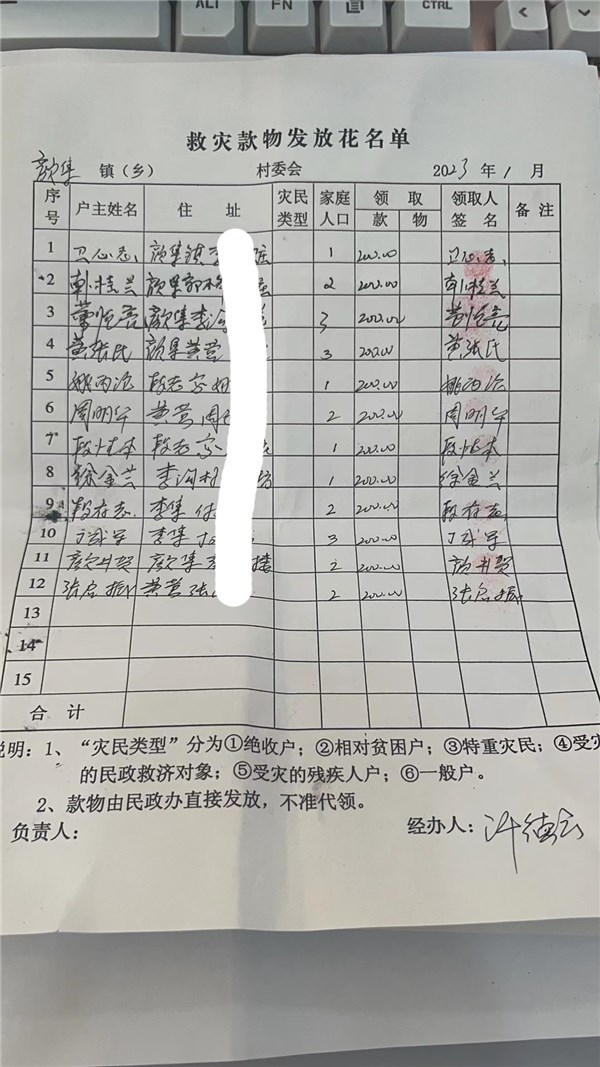 ALT FN CTRL
救灾款物发放花名单
颜集 镇（乡） 村委会 2023 年 1 月
序号 户主姓名 住 址 灾民类型 家庭人口 领 取 款 物 领取人签名 备 注
1 颜集镇 1 200.00
2 韩桂兰 颜集 2 200.00 韩桂兰
3 颜集 3 200.00
4 黄张氏 颜集黄营 3 200.00 黄张氏
5 1 200.00
6 周明军 黄营周 2 200.00 周明军
7 1 200.00
8 徐金兰 李沟村 1 200.00 徐金兰
9 段存志 李集 2 200.00 段存志
10 李集 3 200.00
11 颜井贺 颜集 楼 2 200.00 颜井贺
12 张启振 黄营张 2 200.00 张启振
13
14
15
合 计
说明：1、“灾民类型”分为①绝收户；②相对贫困户；③特重灾民；④受灾
的民政救济对象；⑤受灾的残疾人户；⑥一般户。
2、款物由民政办直接发放，不准代领。
负责人： 经办人：许德云